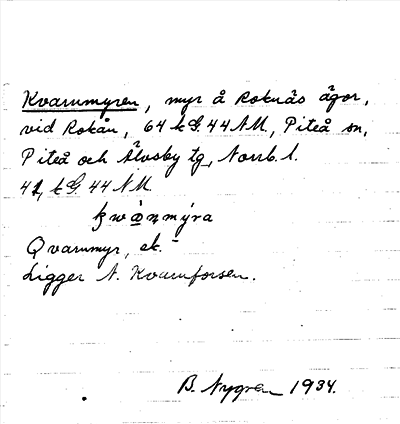 Kvarnmyren, myr å Roknäs ägor,
vid Rokån, 64 k G. 44 NM., Piteå sn,
Piteå och Älvsby tg, Norrb. l.
42, k G. 44 NM.
Qvarnmyr, ek.
Ligger N. Kvarnforsen.
B. Nygren 1934.